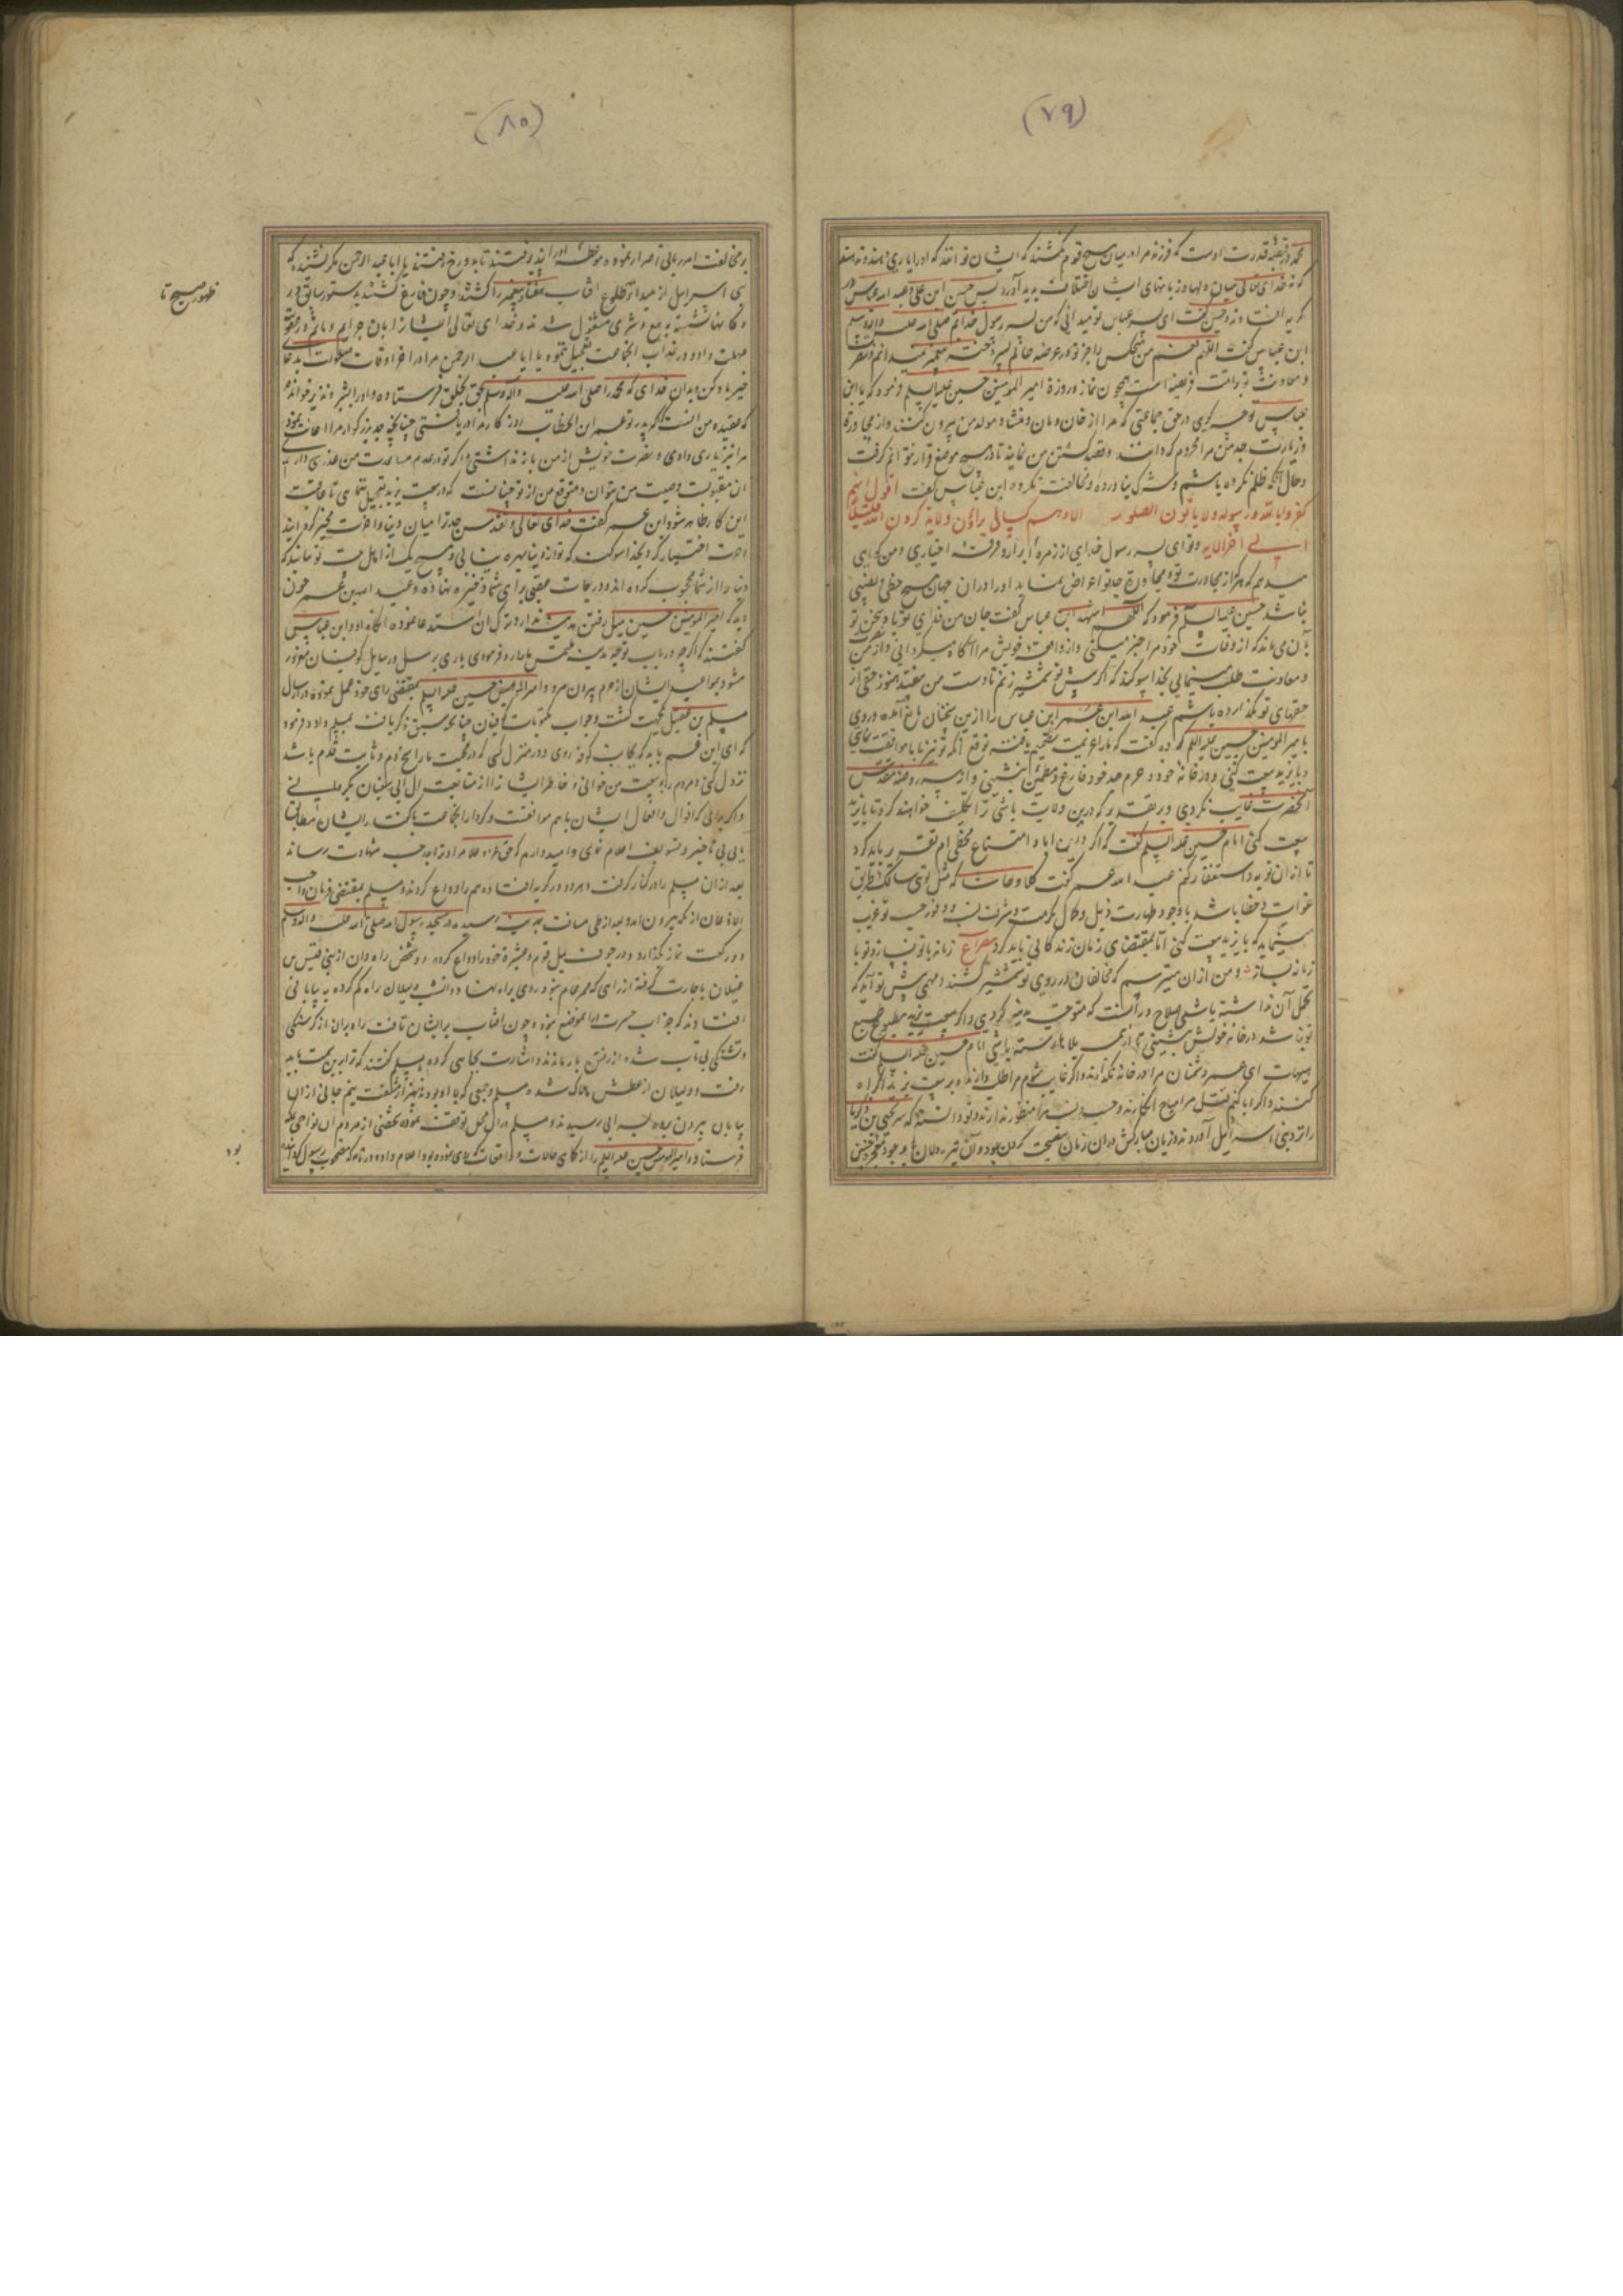 (۷۹)
قدرت اوست که فرزند مرا در میان هیچ قوم نکشند که ایشان
که نه خدای تعالی میان دلها و زبانهای ایشان اختلاف پدید آورد پس حسین ابن علی و عبد الله عباس در
گریه افتادند و حسین گفت ای پسر عباس تو میدانی که من پسر رسول خدایم صلی الله علیه واله وسلم
ابن عباس گفت اللهم نعم من هیچکس را جز تو در عرصه عالم پسر دختر پیغمبر نمیدانم و نصرت
و معاونت تو بر امت فریضه است همچون نماز و روزه امیر المومنین حسین علیه السلام فرمود که یا ابن
عباس تو چه گوئی در حق جماعتی که مرا از خان و مان و منشا و مولد من بیرون کنند و از مجاورة
و زیارت جد من مرا محروم گردانند و قصد کشتن من نمایند تا در هیچ موضع قرار نتوانم گرفت
و حال آنکه ظلم نکرده باشم و شرک نیاورده و مخالفت نکرده ابن عباس گفت اقول انهم
کفروا بالله ورسوله ولا یاتون الصلوة الا وهم کسالی یراؤن
الی آخر الایه و تو ای پسر رسول خدای از زمره ابرار و فرقه اخیاری و من گواهی
میدهم که هر که از مجاورت تو و مجاورة جد تو اعراض نماید او را در ان جهان هیچ حظی و نصیبی
نباشد حسین علیه السلام فرمود که اللهم اشهد ابن عباس گفت جان من فدای تو باد سخن تو
بآن می ماند که از وفات خود مرا خبر میکنی و از واقعه خویش مرا آگاه میگردانی و از من
و معاونت طلب مینمائی بخدا سوگند که اگر پیش تو شمشیر زنم تا دست من بیفتد هنوز حقی از
حقهای تو نگذارده باشم عبد الله ابن عمر ابن عباس را ازین سخنان مانع آمده و روی
بامیر المومنین حسین علیه السلام کرده گفت که ما را عزیمت تصمیم یافته توقع آنکه تو نیز با ما موافقت نمای
و با یزید بیعت کنی و در خانه خود و حرم جد خود فارغ و مطمئن بنشینی و از سر روضه مقدس
آنحضرت غایب نگردی و بر تقدیر که درین ولایت باشی ترا تکلیف خواهند کرد تا با یزید
بیعت کنی امام حسین علیه السلام گفت که اگر درین ابا و امتناع مخطی ام تقریر باید کرد
تا از ان توبه و استغفار کنم عبد الله عمر گفت کلا و حاشا که مثل توئی سالک طریق
غوایت و خطا باشد با وجود طهارت ذیل و کمال کرمت و شرف نسب و وفور حسب تو غریب
مینماید که با یزید بیعت کنی اما بمقتضای زمان زندگانی باید کرد مصراع زمانه با تو نسازد تو با
زمانه بساز و من از ان میترسم که مخالفان در روی تو شمشیر کشند و مهمی پیش تو آید که
تحمل آن نداشته باشی صلاح در آنست که متوجه مدینه گردی و اگر بیعت یزید مطبوع طبع
تو نباشد در خانه خویش بنشینی تا از همه بلاها رسته باشی امام حسین علیه السلام گفت
هیهات ای عمر دشمنان مرا در خانه نگذارند و اگر غایب شوم مرا طلب دارند و بر بیعت یزید اکراه
کنند و اگر ابا کنم قتل مرا مباح انگارند و حسب و نسب مرا منظور ندارند و تو دانسته که سر یحیی بن زکریا
را نزد بنی اسرائیل آوردند و زبان مبارکش در ان زمان نصیحت کردن بود و آن تیره دلان با وجود
(۸۰)
بر مخالفت امر ربانی اصرار نموده تا بدوزخ رفتند یا ابا عبد الرحمن مگر نشنیده که
بنی اسرائیل از مبدا طلوع افتاب هفتاد پیغمبر را کشتند و چون فارغ گشتند بدستور سابق در
دکانها نشسته به بیع و شری مشغول شدند و خدای تعالی ایشانرا بان جرایم و مآثم در عقوبت
مهلت داد و در عذاب انجماعت تعجیل ننمود یا ابا عبد الرحمن مرا در اخر اوقات صلوات بدعای
خیر یاد کن و بدان خدای که محمد را صلی الله علیه واله وسلم بحق بخلق فرستاده و او را بشیر و نذیر خوانده
که عقیده من انست که پدر تو عمر ابن الخطاب روزگار مرا دریافتی چنانچه جد بزرگوار مرا اعانت نمود
مرا نیز یاری دادی و نصرت خویش از من باز نداشتی و اگر تو در عدم مساعدت من عذری داری
ان مقبولست وصیت من بتو ان و متوقع من از تو چنانست که در بیعت یزید تعجیل ننمای تا عاقبت
این کار ظاهر شود ابن عمر گفت خدای تعالی و تقدس جد ترا میان دنیا و اخرت مخیر گردانید
اخرت اختیار کرد بخدا سوگند که تو از دنیا بهره نیابی و هیچ یک از اهل بیت تو نمانند که
دنیا را از شما محجوب کرده اند و درجات عقبی برای شما ذخیره نهاده و عبد الله بن عمر چون
دید که امیر المومنین حسین میل رفتن مدینه ندارد ترک ان استدعا نموده انگاه او و ابن عباس
گفتند که اگر چه در باب توجه مدینه ملتمس ما را رد فرمودی باری برسل و رسایل کوفیان مغرور
مشو و بمواعید ایشان از حرم بیرون مرو و امیر المومنین حسین علیه السلام بمقتضی رای خود عمل نموده در ارسال
مسلم بن عقیل یکجهت گشت و جواب مکتوبات کوفیان چنانچه سبق ذکر یافت بمسلم داد و فرمود
که ای ابن عم باید که بجانب کوفه روی و در منزل کسی که در محبت ما راسخ دم و ثابت قدم باشد
نزول کنی و مردم را به بیعت من خوانی و خاطر ایشانرا از متابعت ال ابی سفیان بگردانی
و اگر بدانی که اقوال و افعال ایشان با هم موافقت و کردار انجماعت با گفتار ایشان مطابق
یابی بی تاخیر و تسویف اعلام نمای و امیدوارم که حق عز و علا مرا و ترا بدرجه شهادت رساند
بعد از ان مسلم را در کنار گرفت و هر دو در گریه افتادند هم را وداع کردند و مسلم بمقتضی فرمان واجب
الاذعان از مکه بیرون آمد و بعد از طی مسافت بمدینه رسیده در مسجد رسول الله صلی الله علیه واله وسلم
دو رکعت نماز بگذارد و در جوف لیل قوم و عشیره خود را وداع کرده و دو شخص راه دان از بنی قیس بن
غیلان باجارت گرفته از راهی که ممر عام نبود روی براه نهادند انشب دلیلان راه گم کرده به بیابانی
افتادند که جز اب حسرت اب دران موضع نبود و چون افتاب بر ایشان تافت راه بران از گرسنگی
و تشنگی بی تاب شده از رفتن باز ماندند و اشارت بجانبی کرده بمسلم گفتند که ترا برین سمت باید
رفت و دلیلان از عطش هلاک شده مسلم و جمعی که با او بودند بهزار مشقت نیم جانی از ان
بیابان بیرون برده بسر ابی رسیدند و مسلم در ان محل توقف نموده شخصی از مردم ان نواحی بمکه
فرستاد و امیر المومنین حسین علیه السلام را از کماهی حالات و واقعات که روی نموده بود اعلام داد و در نامه که مصحوب رسول گردانیده
ظهور صبح تا
بود